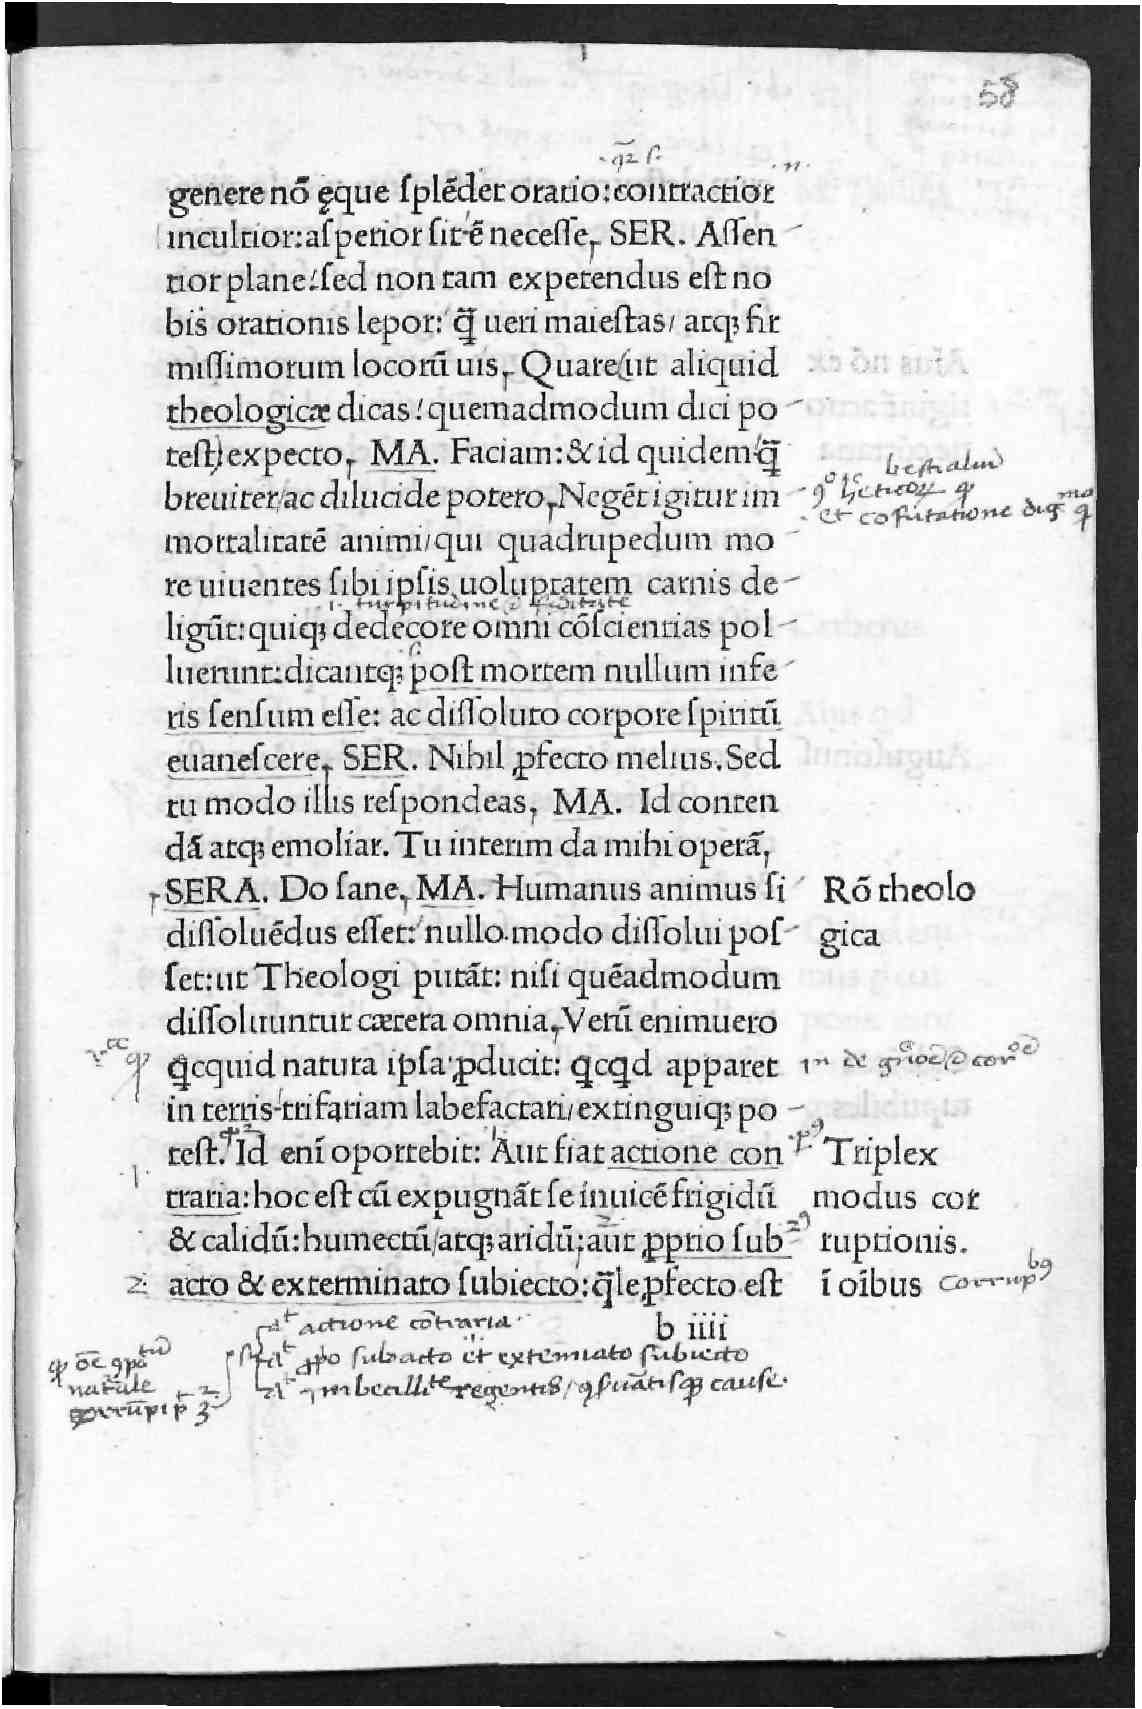 58
genere nō ęque ſplēdet oratio: contractior
incultior: aſperior ſit ē neceſſe, SER. Aſſen
tior plane: ſed non tam expetendus eſt no
bis orationis lepor: q̄ ueri maieſtas/ atq; fir
miſſimorum locorū uis, Quare (ut aliquid
theologicæ dicas: quemadmodum dici po
teſt) expecto, MA. Faciam: & id quidem q̄
breuiter/ ac dilucide potero, Negēt igitur im
mortalitatē animi/ qui quadrupedum mo
re uiuentes ſibi ipſis uoluptatem carnis de
turpitudine
ligūt: quiq; dedecore omni cōſcientias pol
luerunt: dicantq; poſt mortem nullum infe
ris ſenſum eſſe: ac diſſoluto corpore ſpiritū
euaneſcere, SER. Nihil ꝓfecto melius. Sed
tu modo illis reſpondeas, MA. Id conten
dā atq; emoliar. Tu interim da mihi operā,
SERA. Do ſane, MA. Humanus animus ſi
Rō theolo
diſſoluēdus eſſet: nullo modo diſſolui poſ
gica
ſet: ut Theologi putāt: niſi quēadmodum
diſſoluuntur cætera omnia, Verū enimuero
qcquid natura ipſa ꝓducit: qcqd apparet
in terris trifariam labefactari/ extinguiq; po
teſt. Id enī oportebit: Aut fiat actione con
Triplex
traria: hoc eſt cū expugnāt ſe inuicē frigidū
modus cor
& calidū: humectū/ atq; aridū; aut ꝓprio ſub
ruptionis.
2. acto & exterminato ſubiecto: q̄le ꝓfecto eſt
ī oībus
b iiii
actione cōtraria
subacto et extermīato subiecto